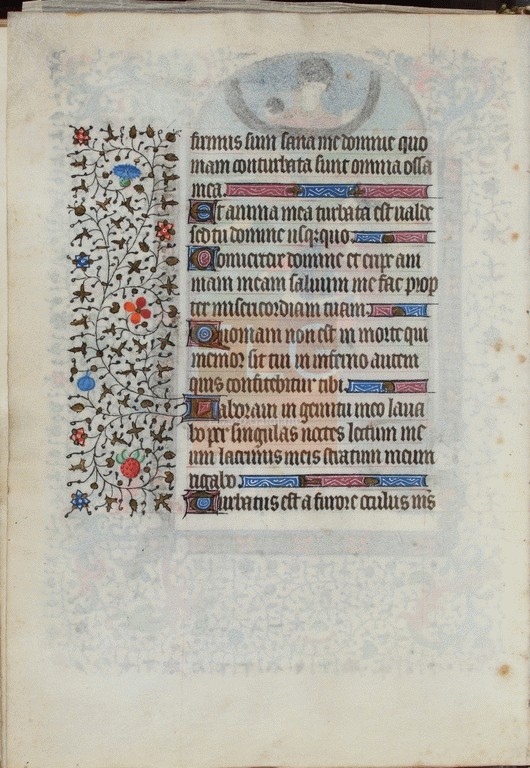 firmus sum sana me domine quo
niam conturbata sunt omnia ossa
mea.
Et anima mea turbata est ualde
sed tu domine usq3 quo.
Conuertere domine et eripe ani
mam meam saluum me fac prop
ter misericordiam tuam.
Quoniam non est in morte qui
memor sit tui in inferno autem
quis confitebitur tibi.
Laboraui in gemitu meo laua
bo per singulas noctes lectum me
um lacrimis meis stratum meum
rigabo.
Turbatus est a furore oculus m̄s